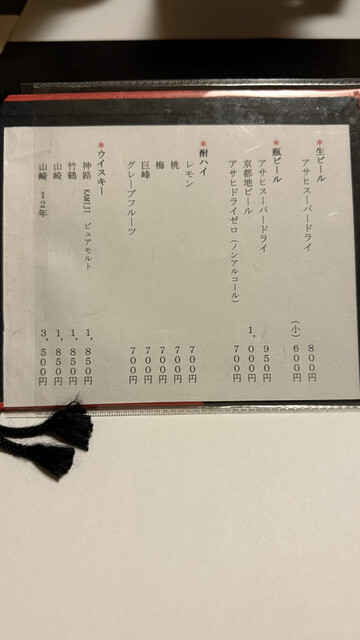 *生ビール
アサヒスーパードライ 800円
(小) 600円
*瓶ビール
アサヒスーパードライ 950円
京都地ビール 1,000円
アサヒドライゼロ(ノンアルコール) 700円
*酎ハイ
レモン 700円
桃 700円
梅 700円
巨峰 700円
グレープフルーツ 700円
*ウイスキー
神路 KAMIJI ピュアモルト 1,850円
竹鶴 1,850円
山崎 1,850円
山崎 12年 3,500円